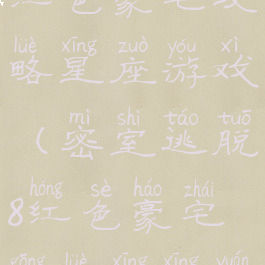 红色豪宅攻
lüè xīng zuò yóu xì
略星座游戏
mì shì táo tuō
(密室逃脱
hóng sè háo zhái
8红色豪宅
gōng lüè xīng xīng yuán